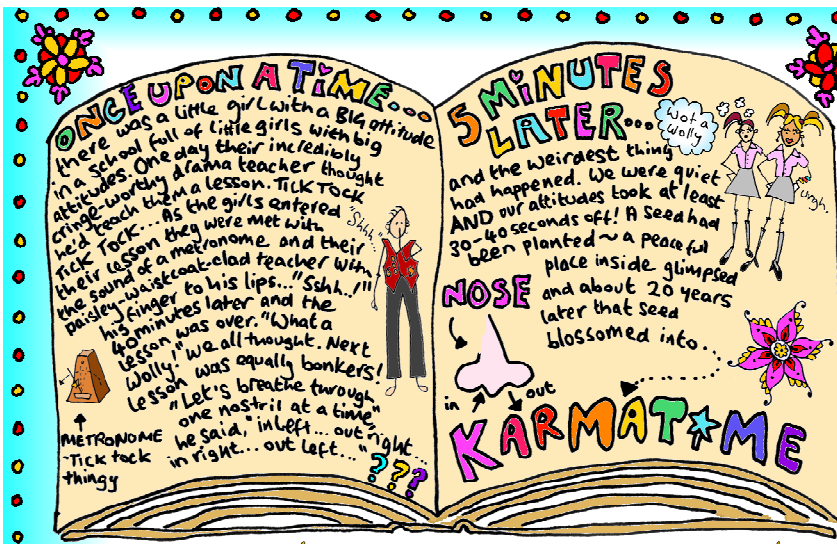 ONCE UPON A TiME...
there was a little girl with a BIG attitude
in a school full of little girls with big
attitudes. One day their incredibly
cringe-worthy drama teacher thought
he'd teach them a lesson. TICK TOCK
TICK TOCK... As the girls entered
their lesson they were met with
the sound of a metronome and their
paisley-waistcoat-clad teacher with
his finger to his lips... "Sshh..!"
40 minutes later and the
lesson was over. "What a
Wolly," we all thought. Next
lesson was equally bonkers!
"Let's breathe through
one nostril at a time,"
he said, "in left... out right...
in right... out left..."
???
"Shhh..."
METRONOME
Tick tock
thingy
5 MiNUTES
LATER...
and the weirdest thing
had happened. We were quiet
AND our attitudes took at least
30-40 seconds off! A seed had
been planted ~ a peaceful
place inside glimpsed
and about 20 years
later that seed
blossomed into...
Wot a
Wolly
urgh..
NOSE
in
out
KARMATiME